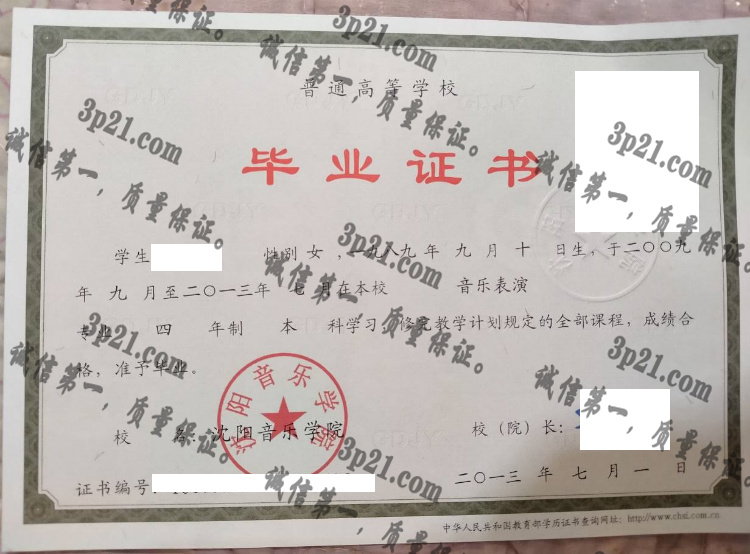 普通高等学校
毕业证书
学生 性别 女 ,一九八九年 九 月 十 日生,于二〇〇九
年 九 月至二〇一三年 七 月在本校 音乐表演
专业 四 年制 本 科学习,修完教学计划规定的全部课程,成绩合
格,准予毕业。
校 名:沈阳音乐学院
校(院)长:
证书编号:
二〇一三 年 七 月 一 日
中华人民共和国教育部学历证书查询网址:http://www.chsi.com.cn
沈阳音乐学院
3p21.com
诚信第一,质量保证。
3p21.com
诚信第一,质量保证。
3p21.com
诚信第一,质量保证。
3p21.com
诚信第一,质量保证。
3p21.com
诚信第一,质量保证。
3p21.com
诚信第一,质量保证。
3p21.com
诚信第一,质量保证。
质量保证。